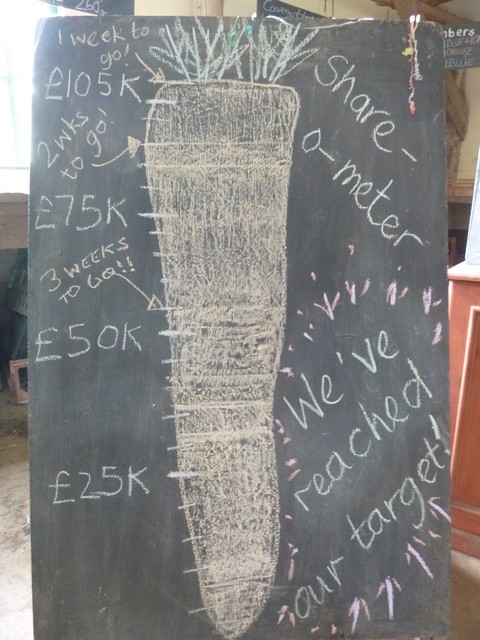 1 week to
go!
£105K
2 wks
to go!
£75K
3 WEEKS
TO GO!!
£50K
£25K
Share-
o-meter
We've
reached
our target!